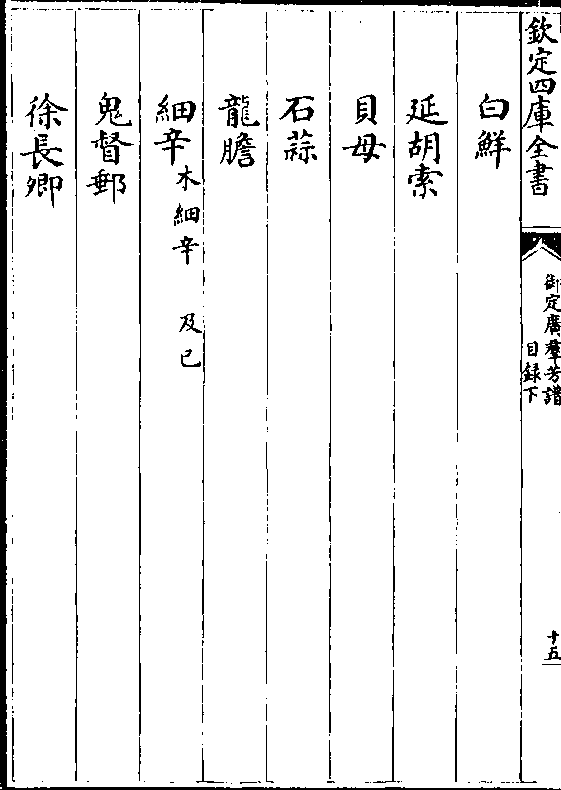 欽定四庫全書
御定廣羣芳譜
目録下
十五
白鮮
延胡索
貝母
石蒜
龍膽
細辛 木細辛 及已
鬼督郵
徐長卿